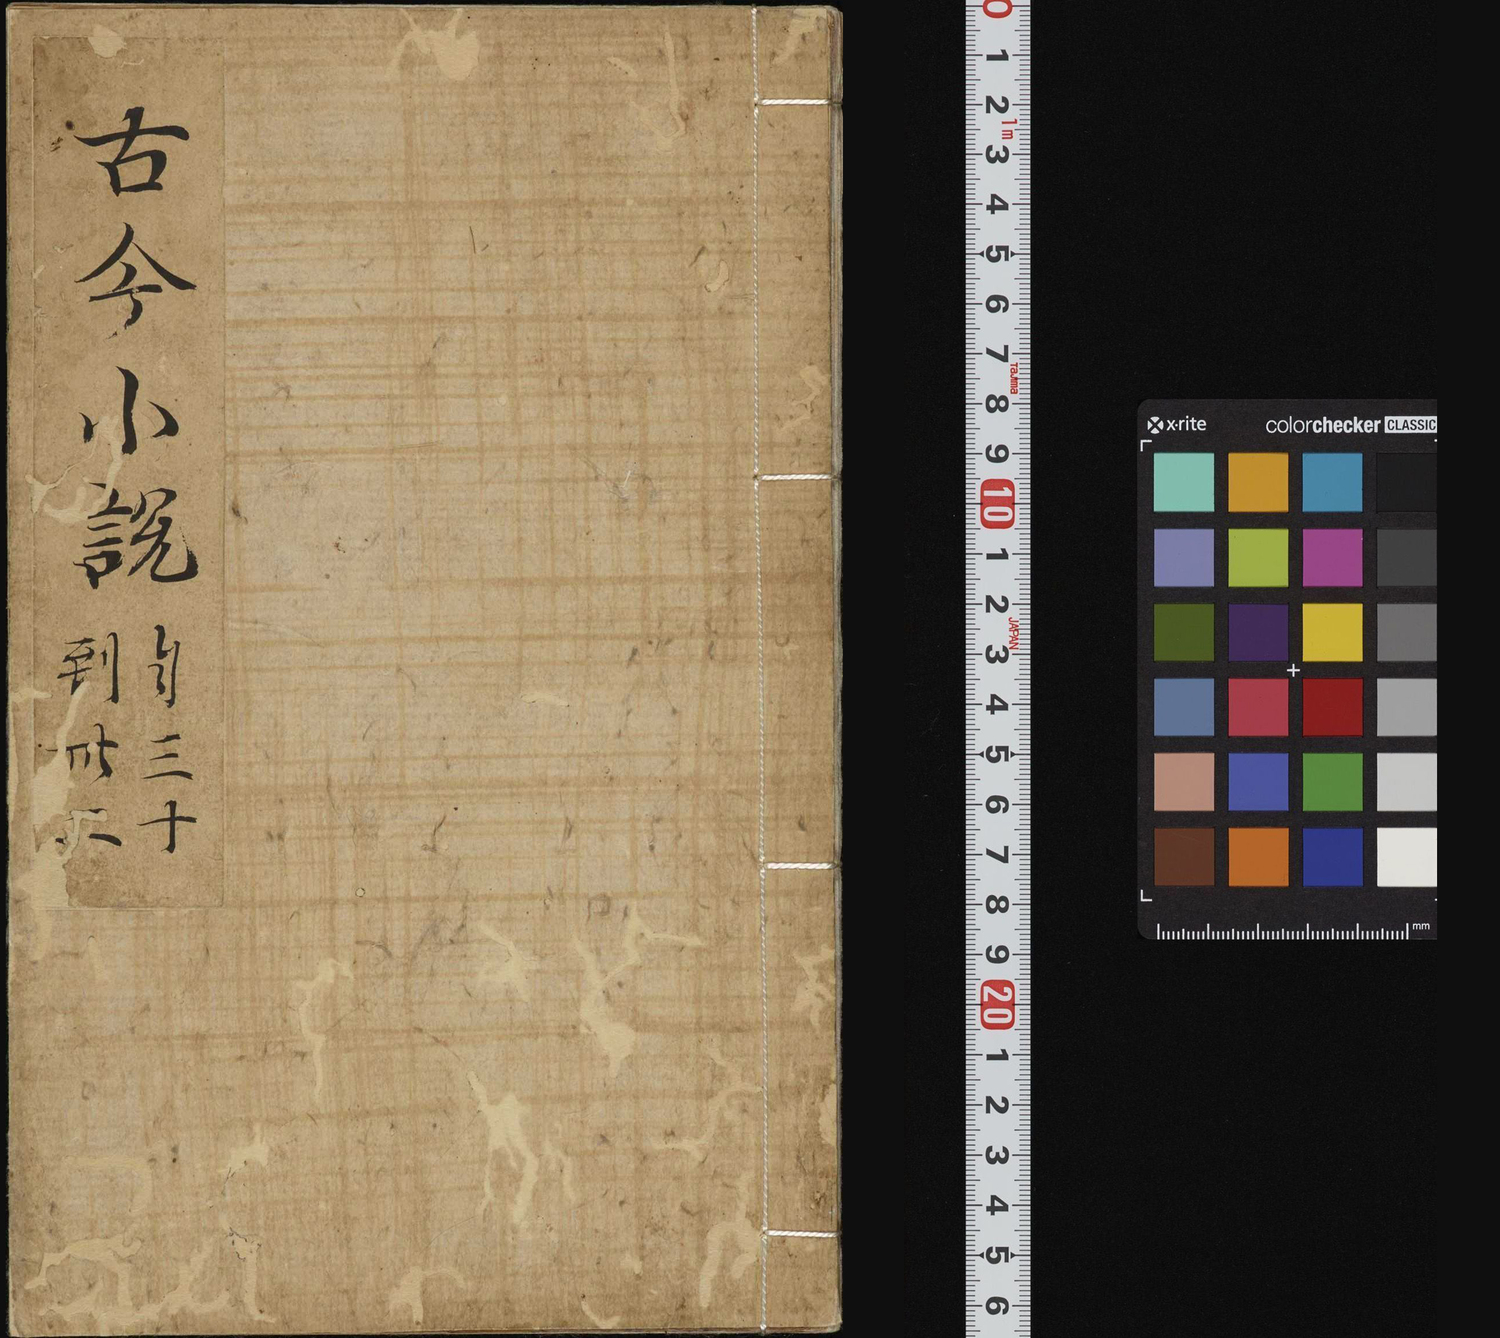 古今小說
自三十
到卅二
0
1
2
1m
3
4
5
6
7
Tajima
8
9
10
1
2
JAPAN
3
4
5
6
7
8
9
20
1
2
3
4
5
6
x·rite
colorchecker CLASSIC
mm